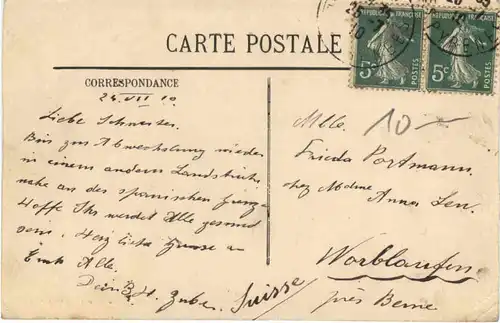 CARTE POSTALE
RÉPUBLIQUE FRANÇAISE
5c POSTES
5c POSTES
CORRESPONDANCE
24. VII 10
Liebe Schwester.
Bin zur Abwechslung wieder
in einem andern Landstrich
nahe an der spanischen Grenze
Hoffe Ihr werdet Alle gesund
sein. Herzliche Grüsse an
Euch Alle.
Dein
Mlle.
10-
Frieda Portmann.
chez Mdme
Anna
Worblaufen
près Berne
Suisse